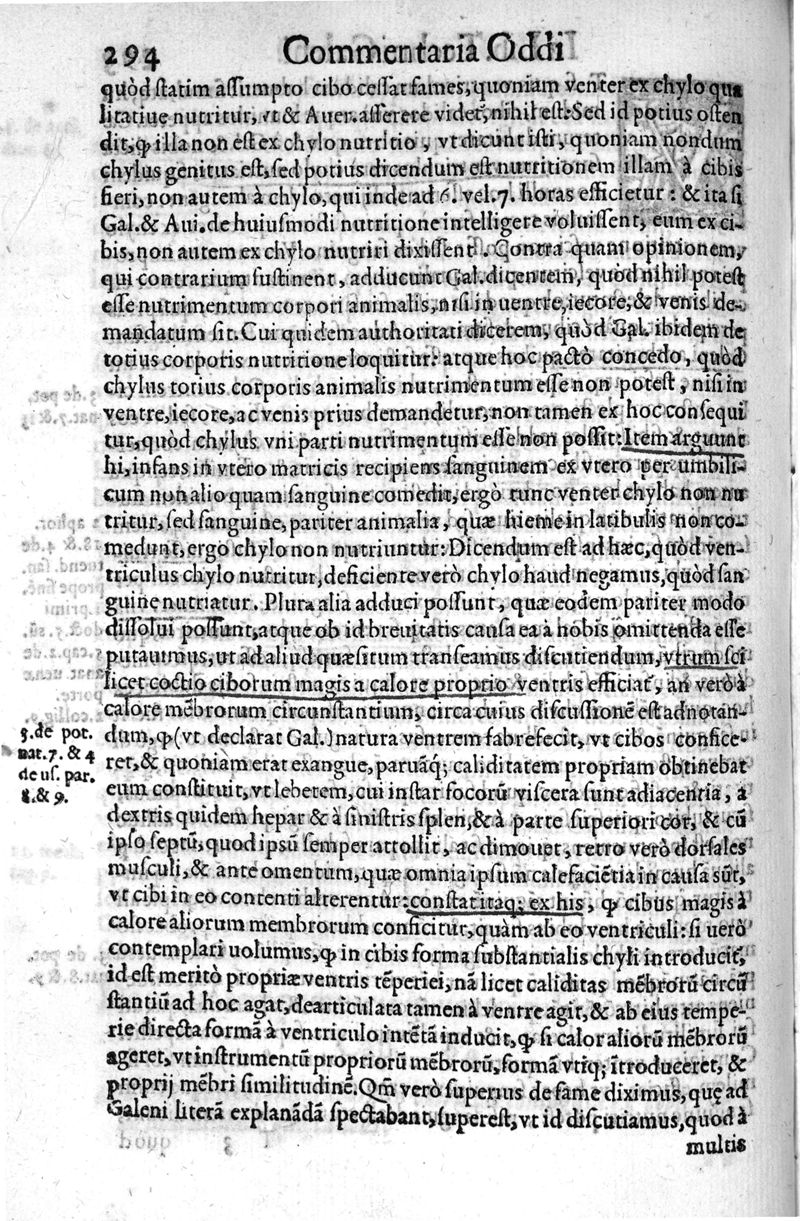 294 Commentaria Oddi
quòd statim assumpto cibo cessat fames, quoniam venter ex chylo qua
litatiue nutritur, vt & Auer. asserere videt̃, nihil est. Sed id potius osten
dit, ꝙ illa non est ex chylo nutritio, vt dicunt isti, quoniam nondum
chylus genitus est, sed potius dicendum est nutritionem illam à cibis
fieri, non autem à chylo, qui inde ad 6. vel. 7. horas efficietur: & ita si
Gal. & Aui. de huiusmodi nutritione intelligere voluissent, eum ex ci-
bis, non autem ex chylo nutriri dixissent. Contra quam opinionem,
qui contrarium sustinent, adducunt Gal. dicentem, quòd nihil potest
esse nutrimentum corpori animalis, nisi in ventre, iecore, & venis de-
mandatum sit. Cui quidem authoritati dicerem, quòd Gal. ibidem de
totius corporis nutritione loquitur: atque hoc pacto concedo, quòd
chylus totius corporis animalis nutrimentum esse non potest, nisi in
ventre, iecore, ac venis prius demandetur, non tamen ex hoc consequi
tur, quòd chylus vni parti nutrimentum esse non possit: Item arguunt
hi, infans in vtero matricis recipiens sanguinem ex vtero per umbili-
cum non alio quam sanguine comedit, ergò tunc venter chylo non nu
tritur, sed sanguine, pariter animalia, quæ hieme in latibulis non co-
medunt, ergo chylo non nutriuntur: Dicendum est ad hæc, quòd ven-
triculus chylo nutritur, deficiente verò chylo haud negamus, quòd san
guine nutriatur. Plura alia adduci possunt, quæ eodem pariter modo
dissolui possunt, atque ob id breuitatis causa ea à nobis omittenda esse
putauimus, ut ad aliud quæsitum transeamus discutiendum, vtrum sci
licet coctio ciborum magis a calore proprio ventris efficiat̃, an verò à
calore mẽbrorum circunstantium, circa cuius discussionẽ est adnotan-
dum, ꝙ (vt declarat Gal.) natura ventrem fabrefecit, vt cibos confice-
ret, & quoniam erat exangue, paruãq; caliditatem propriam obtinebat
eum constituit, vt lebetem, cui instar focorũ viscera sunt adiacentia, à
dextris quidem hepar & à sinistris splen, & à parte superiori cor, & cũ
ipso septũ, quod ipsũ semper attollit, ac dimouet, retro verò dorsales
musculi, & ante omentum, quæ omnia ipsum calefaciẽtia in causa sũt,
vt cibi in eo contenti alterentur: constat itaq; ex his, ꝙ cibus magis à
calore aliorum membrorum conficitur, quàm ab eo ventriculi: si uerò
contemplari uolumus, ꝙ in cibis forma substantialis chyli introducit̃,
id est meritò propriæ ventris tẽperiei, nã licet caliditas mẽbrorũ circũ
stantiũ ad hoc agat, dearticulata tamen à ventre agit, & ab eius tempe-
rie directa formã à ventriculo intẽtã inducit, ꝙ si calor aliorũ mẽbrorũ
ageret, vt instrumentũ propriorũ mẽbrorũ, formã vtiq; ĩtroduceret, &
proprij mẽbri similitudinẽ. Qm̃ verò superius de fame diximus, quę ad
Galeni literã explanãdã spectabant, superest, vt id discutiamus, quod à
multis
5. de pot.
nat. 7. & 4
de us. par.
8. & 9.